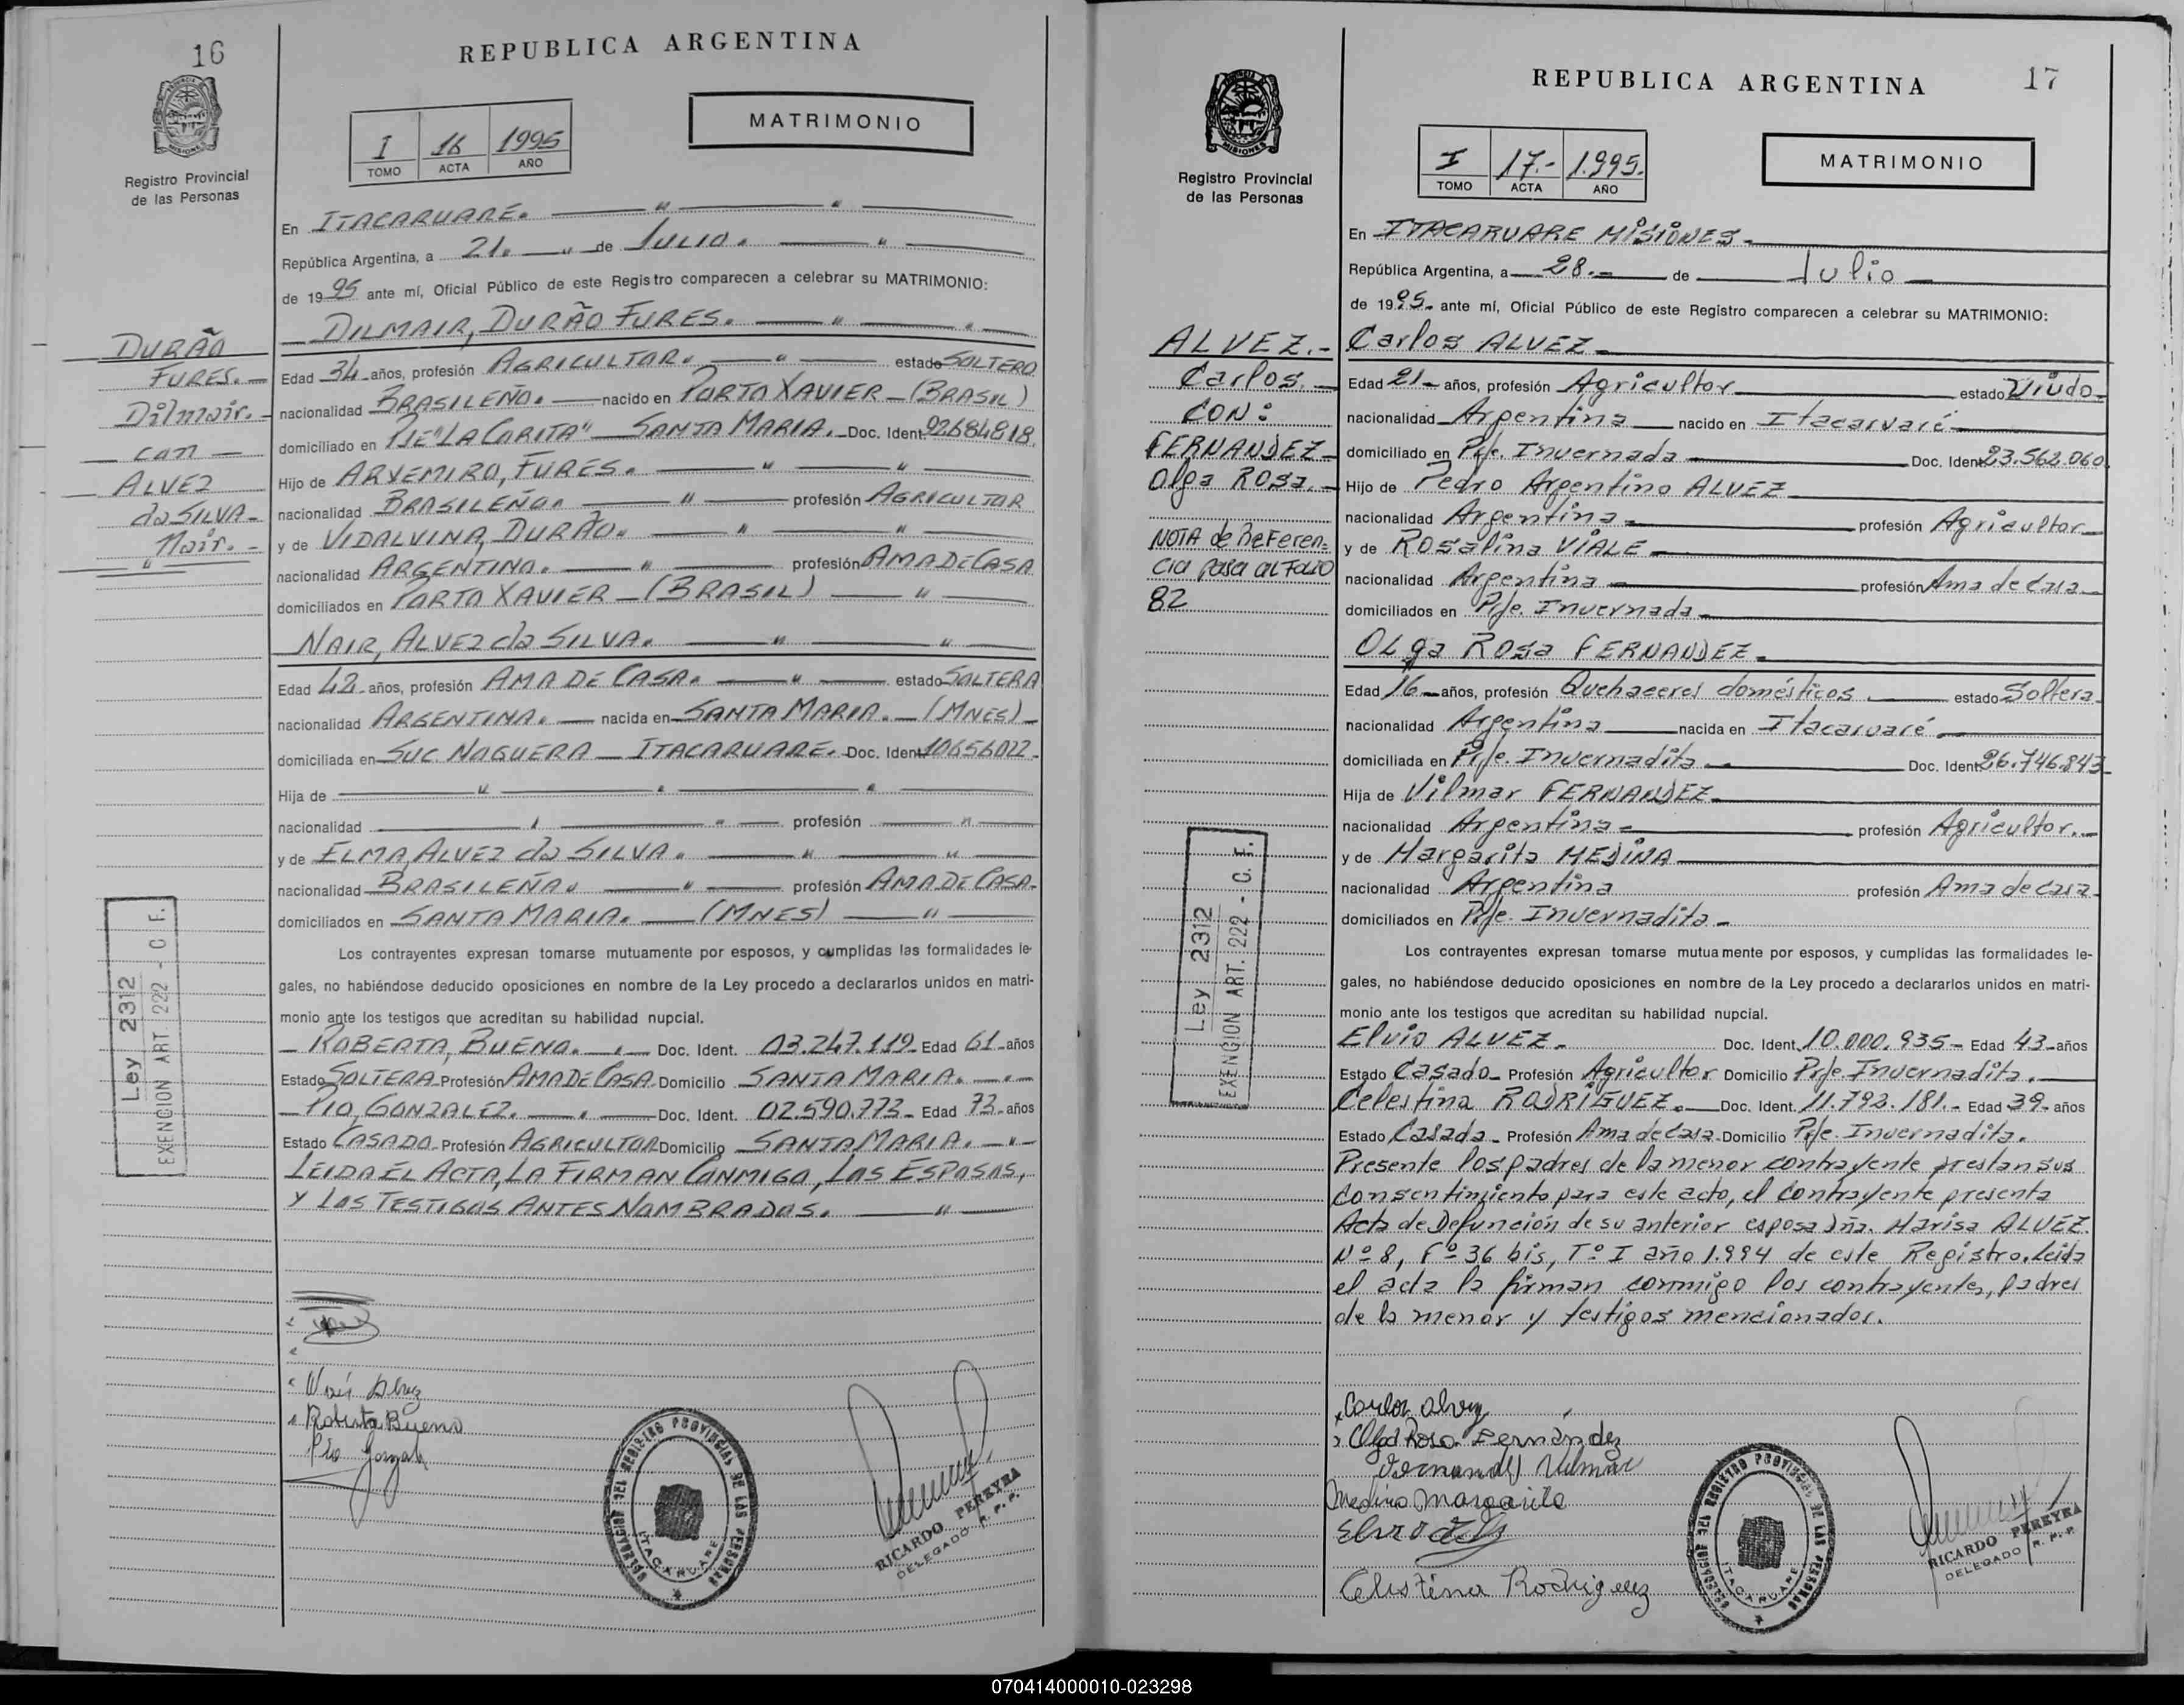 16
REPUBLICA ARGENTINA
Registro Provincial
de las Personas
I 16 1995
TOMO ACTA AÑO
MATRIMONIO
En ITACARUARE.
República Argentina, a 21. de JULIO.
de 1995 ante mí, Oficial Público de este Registro comparecen a celebrar su MATRIMONIO:
DILMAIR, DURÃO FURES.
Edad 34 años, profesión AGRICULTOR. estado SOLTERO
nacionalidad BRASILEÑO. nacido en PORTO XAVIER - (BRASIL)
domiciliado en PJE "LA CORITA" SANTA MARIA. Doc. Ident. 92684818.
Hijo de ARVEMIRO, FURES.
nacionalidad BRASILEÑO. profesión AGRICULTOR
y de VIDALVINA, DURÃO.
nacionalidad ARGENTINO. profesión AMA DE CASA
domiciliados en PORTO XAVIER - (BRASIL)
NAIR, ALVEZ da SILVA.
Edad 42 años, profesión AMA DE CASA. estado SOLTERA
nacionalidad ARGENTINA. nacida en SANTA MARIA. - (MNES) -
domiciliada en SUC. NOGUERA - ITACARUARE. Doc. Ident. 10656022 -
Hija de
nacionalidad profesión
y de ELMA, ALVEZ da SILVA.
nacionalidad BRASILEÑA. profesión AMA DE CASA.
domiciliados en SANTA MARIA. - (MNES)
Los contrayentes expresan tomarse mutuamente por esposos, y cumplidas las formalidades le-
gales, no habiéndose deducido oposiciones en nombre de la Ley procedo a declararlos unidos en matri-
monio ante los testigos que acreditan su habilidad nupcial.
ROBERTA, BUENO. Doc. Ident. 03.247.119 - Edad 61 años
Estado SOLTERA Profesión AMA DE CASA Domicilio SANTA MARIA.
PIO, GONZALEZ. Doc. Ident. 02.590.773 - Edad 73 años
Estado CASADO Profesión AGRICULTOR Domicilio SANTA MARIA.
LEIDA EL ACTA, LA FIRMAN CONMIGO, LOS ESPOSOS,
Y LOS TESTIGOS ANTES NOMBRADOS.
DURÃO
FURES. -
Dilmair. -
con
ALVEZ
da SILVA -
Nair. -
Ley 2312
EXENCION ART 222 - C F.
Roberta Bueno
Pio
DELEGACION DEL REGISTRO PROVINCIAL DE LAS PERSONAS
ITACARUARE
RICARDO PEREYRA
DELEGADO R. P. P.
17
REPUBLICA ARGENTINA
Registro Provincial
de las Personas
I 17.- 1.995.
TOMO ACTA AÑO
MATRIMONIO
En ITACARUARE MISIONES -
República Argentina, a 28.- de Julio
de 1995. ante mí, Oficial Público de este Registro comparecen a celebrar su MATRIMONIO:
Carlos ALVEZ -
Edad 21 - años, profesión Agricultor estado Viudo -
nacionalidad Argentina nacido en Itacaruaré -
domiciliado en Pje. Invernada Doc. Ident. 23.562.060
Hijo de Pedro Argentino ALVEZ
nacionalidad Argentina profesión Agricultor
y de Rosalina VIALE
nacionalidad Argentina profesión Ama de casa
domiciliados en Pje. Invernada
Olga Rosa FERNANDEZ.
Edad 16 - años, profesión Quehaceres domésticos. estado Soltera.
nacionalidad Argentina nacida en Itacaruaré.
domiciliada en Pje. Invernadita Doc. Ident. 26.746.843
Hija de Vilmar FERNANDEZ
nacionalidad Argentina profesión Agricultor.
y de Margarita MEDINA
nacionalidad Argentina profesión Ama de casa
domiciliados en Pje. Invernadita -
Los contrayentes expresan tomarse mutuamente por esposos, y cumplidas las formalidades le-
gales, no habiéndose deducido oposiciones en nombre de la Ley procedo a declararlos unidos en matri-
monio ante los testigos que acreditan su habilidad nupcial.
Elvio ALVEZ. Doc. Ident. 10.000.935 - Edad 43 años
Estado Casado - Profesión Agricultor Domicilio Pje. Invernadita.
Celestina RODRIGUEZ. Doc. Ident. 11.792.181.- Edad 39 años
Estado Casada - Profesión Ama de casa Domicilio Pje. Invernadita.
Presente los padres de la menor contrayente prestan sus
consentimiento para este acto, el contrayente presenta
Acta de Defunción de su anterior esposa Dña. Marisa ALVEZ.
Nº 8, Fº 36 bis, Tº I año 1.994 de este Registro. Leida
el acta la firman conmigo los contrayentes, padres
de la menor y testigos mencionados.
ALVEZ.-
Carlos. -
CON:
FERNANDEZ -
Olga Rosa. -
NOTA de Referen=
cia pasa al Folio
82
Ley 2312
EXENCION ART. 222 - C. F.
Carlos Alvez
Olga Rosa Fernandez
Fernandez Vilmar
Medina Margarita
Celestina Rodriguez
DELEGACION DEL REGISTRO PROVINCIAL DE LAS PERSONAS
ITACARUARE
RICARDO PEREYRA
DELEGADO R. P. P.
070414000010-023298